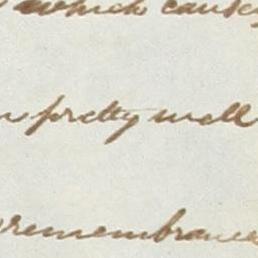 which cause
pretty well
remembrance